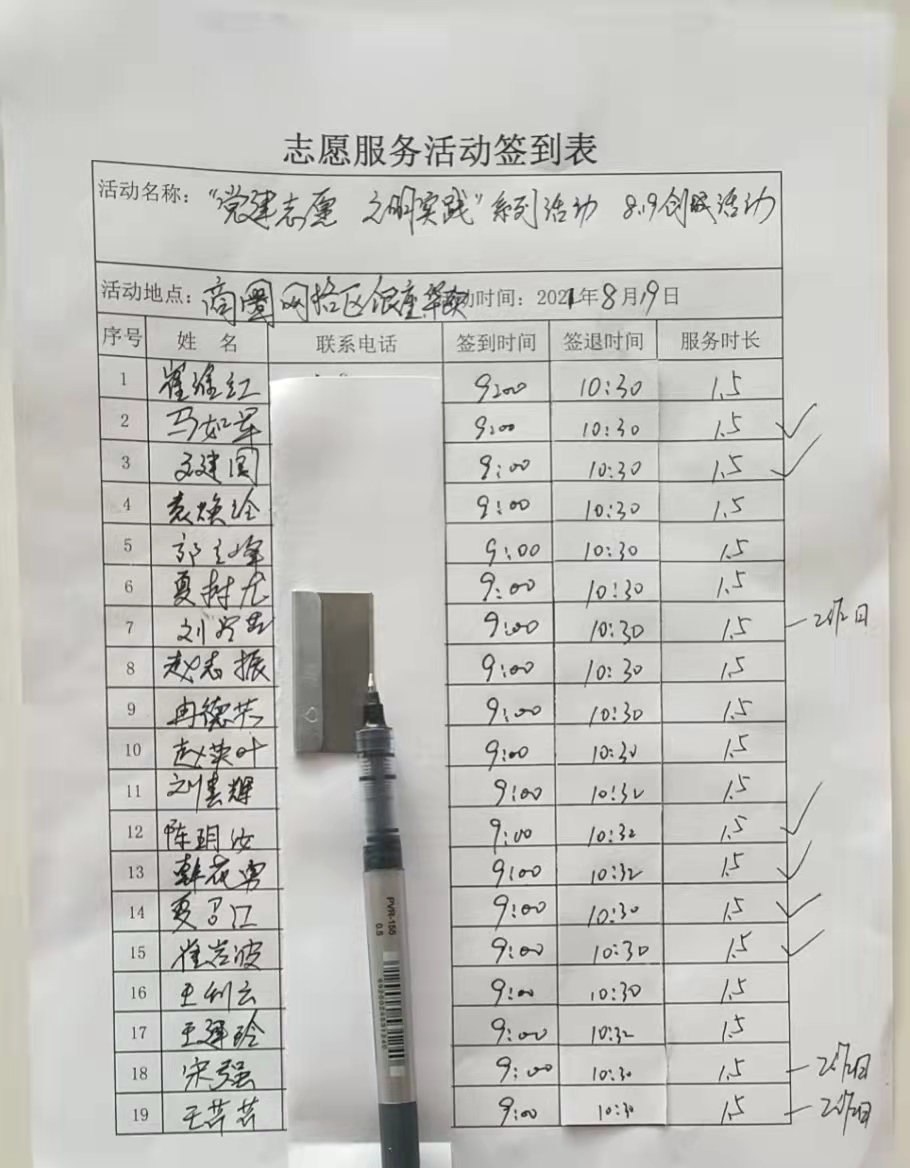 志愿服务活动签到表
活动名称：“党建志愿 文明实践”系列活动 8.19创城活动
活动地点：商圈网格区银座 动时间：2021年8月19日
序号 姓名 联系电话 签到时间 签退时间 服务时长
1 崔维红 9:00 10:30 1.5
2 马如军 9:00 10:30 1.5 ✓
3 孟建国 9:00 10:30 1.5 ✓
4 袁焕玲 9:00 10:30 1.5
5 郭立峰 9:00 10:30 1.5
6 夏树龙 9:00 10:30 1.5
7 刘 9:00 10:30 1.5
8 赵志振 9:00 10:30 1.5
9 冉德芬 9:00 10:30 1.5
10 赵荣叶 9:00 10:30 1.5
11 刘春辉 9:00 10:32 1.5
12 陈玥汝 9:00 10:32 1.5 ✓
13 韩花勇 9:00 10:32 1.5 ✓
14 夏召江 9:00 10:30 1.5 ✓
15 崔岩波 9:00 10:30 1.5 ✓
16 王利云 9:00 10:30 1.5
17 王瑞玲 9:00 10:32 1.5
18 宋强 9:00 10:30 1.5
19 王芹芹 9:00 10:30 1.5
PVR-155
0.5